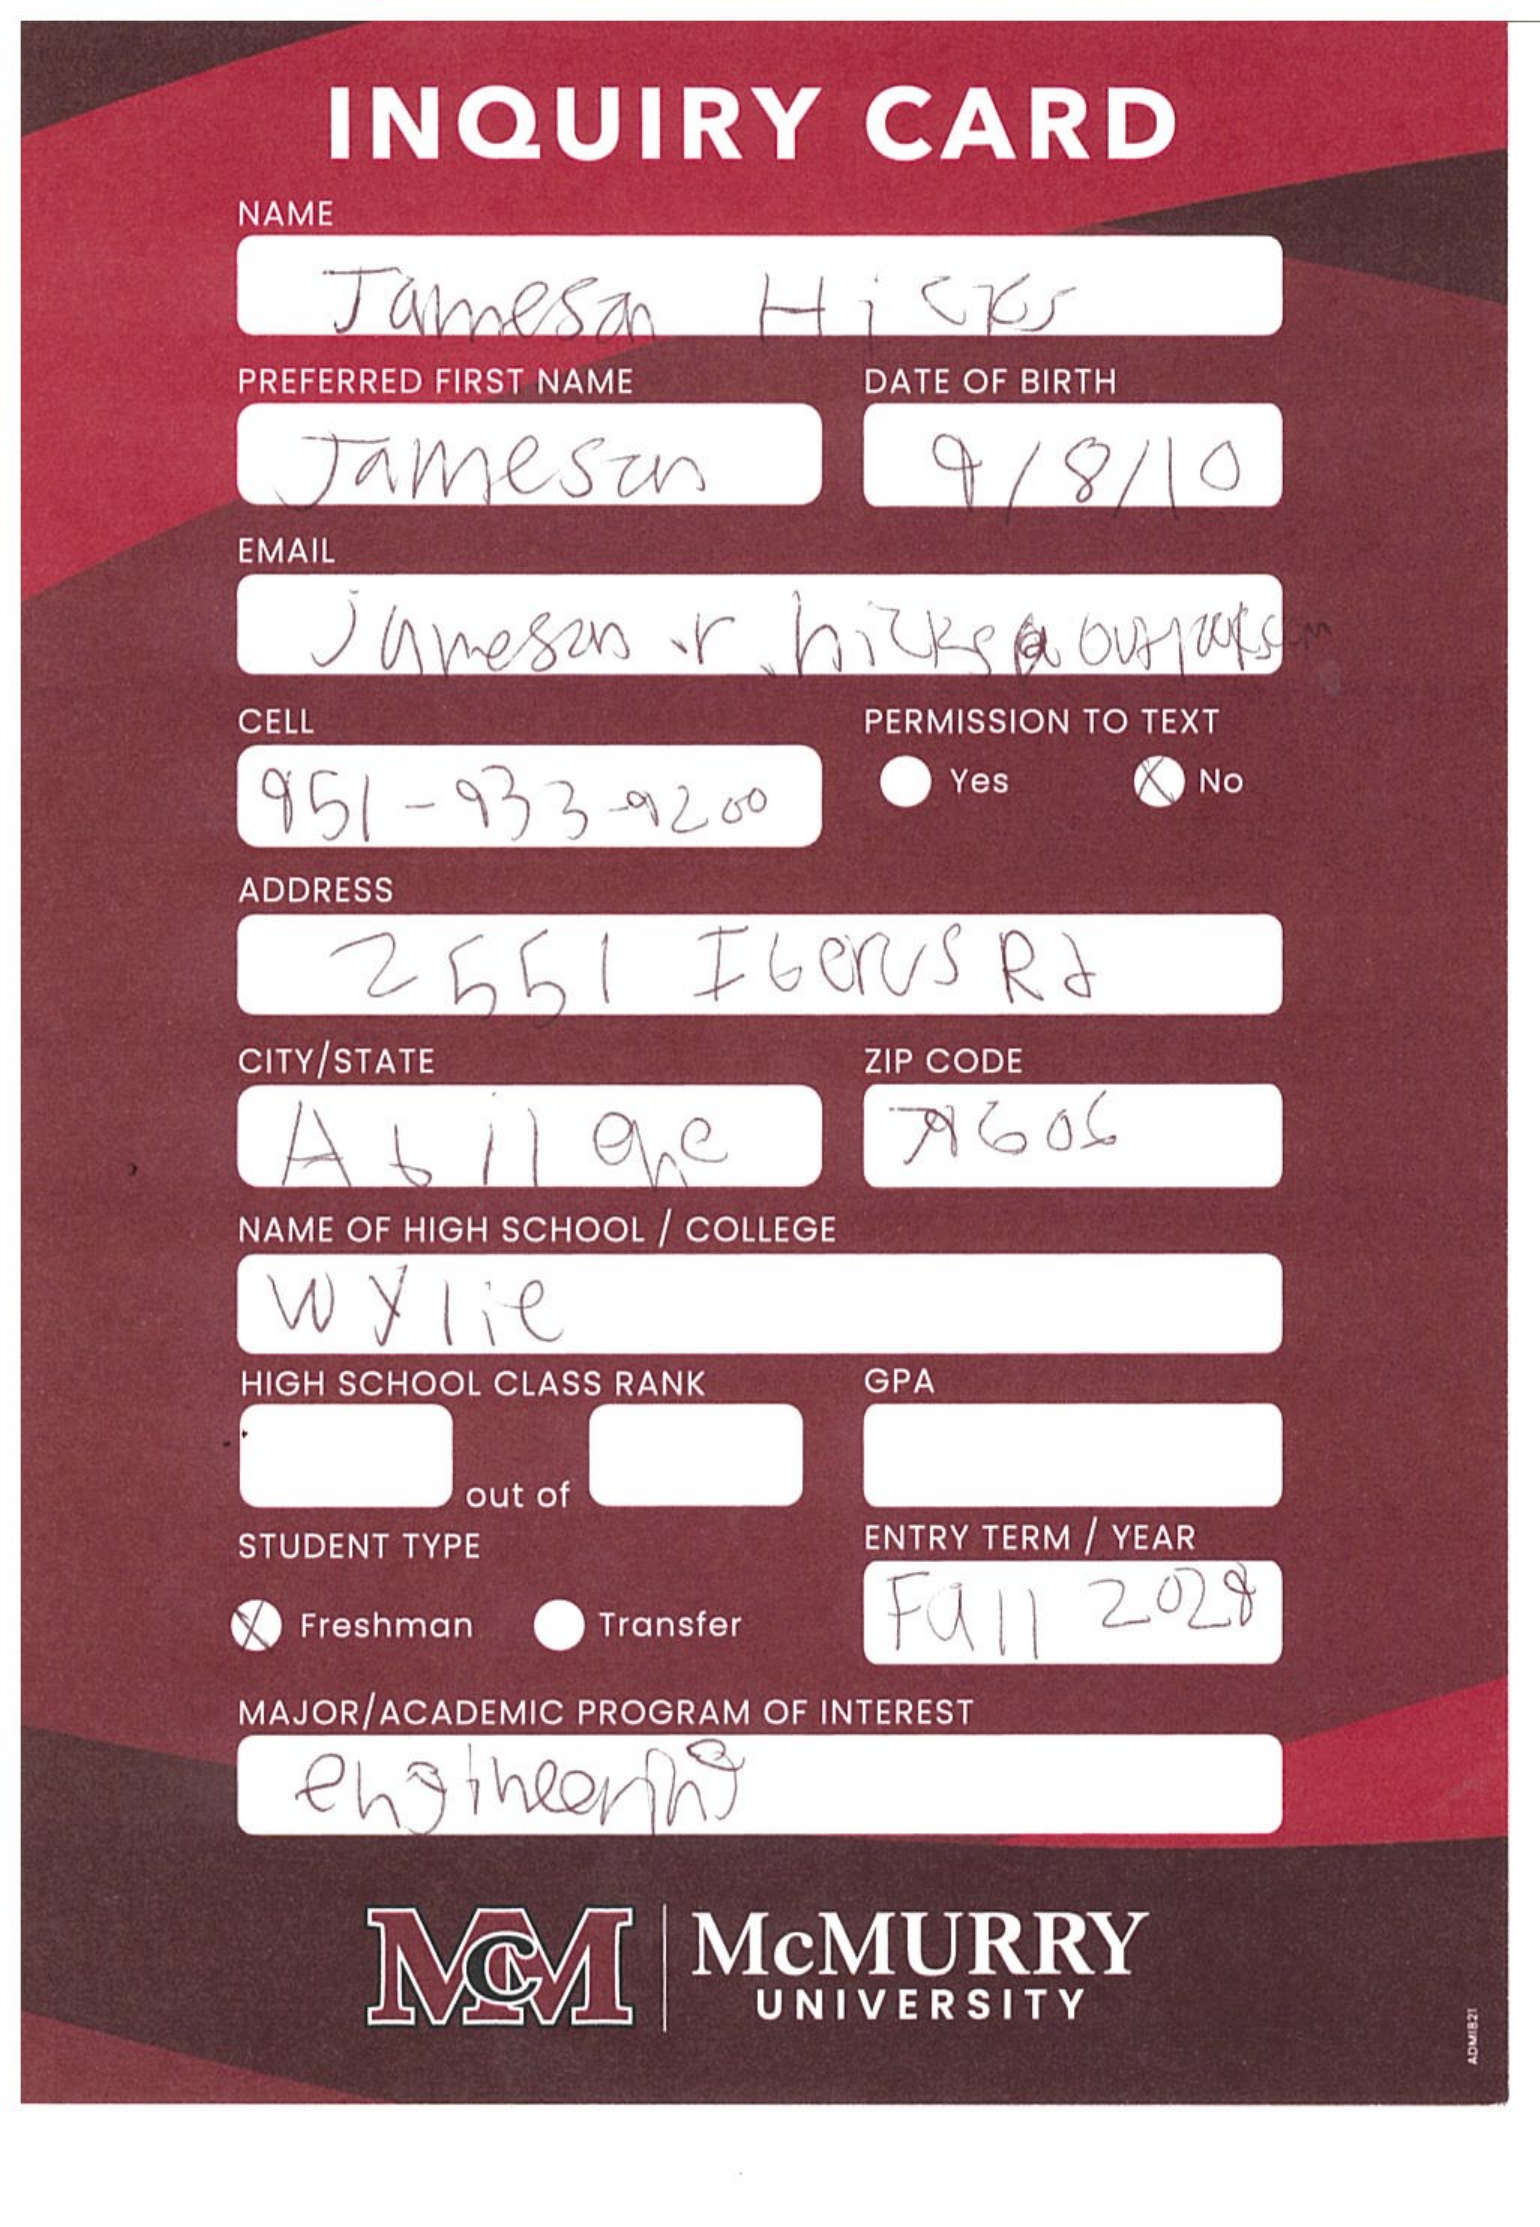 INQUIRY CARD
NAME
Jameson Hicks
PREFERRED FIRST NAME
Jameson
DATE OF BIRTH
9/8/10
EMAIL
jameson.r.hicks@outlook.com
CELL
951-933-9200
PERMISSION TO TEXT
Yes
X No
ADDRESS
2551 Iberis Rd
CITY/STATE
Abilene
ZIP CODE
79606
NAME OF HIGH SCHOOL / COLLEGE
Wylie
HIGH SCHOOL CLASS RANK
out of
GPA
STUDENT TYPE
X Freshman
Transfer
ENTRY TERM / YEAR
Fall 2028
MAJOR/ACADEMIC PROGRAM OF INTEREST
engineering
MCM
McMURRY
UNIVERSITY
ADM1821